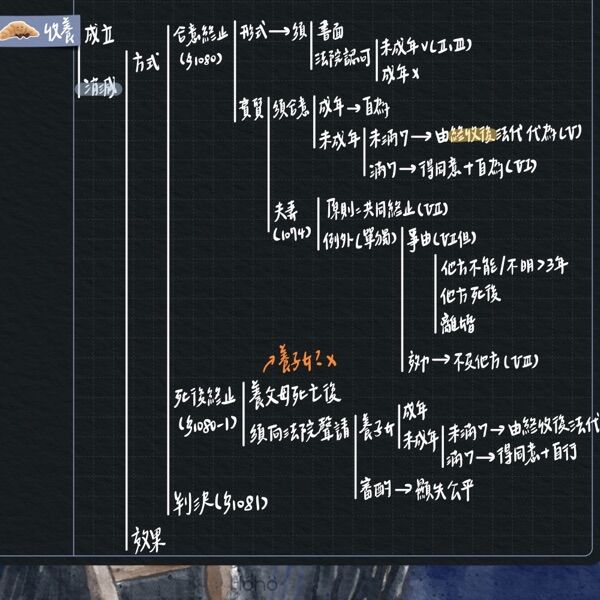 收養
成立
消滅
方式
合意終止
(§1080)
形式→須
書面
法院認可
未成年V(Ⅱ,Ⅲ)
成年x
實質
須合意
成年→自為
未成年
未滿7→由終收後法代代為(Ⅴ)
滿7→得同意+自為(ⅤI)
夫妻
(1074)
原則=共同終止(ⅦI)
例外(單獨)
事由(ⅦI但)
他方不能/不明>3年
他方死後
離婚
效力→不及他方(Ⅷ)
→養子女?x
死後終止
(§1080-1)
養父母死亡後
須向法院聲請
養子女
成年
未成年
未滿7→由終收後法代
滿7→得同意+自行
審酌→顯失公平
判決(§1081)
效果